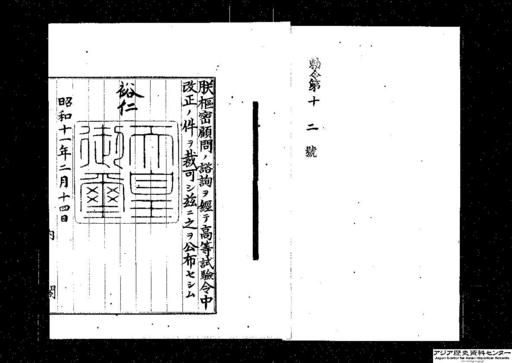 勅令第十二號
朕樞密顧問ノ諮詢ヲ經テ高等試驗令中
改正ノ件ヲ裁可シ茲ニ之ヲ公布セシム
裕仁
天皇御璽
昭和十一年二月十四日
内閣
アジア歴史資料センター
Japan Center for Asian Historical Records